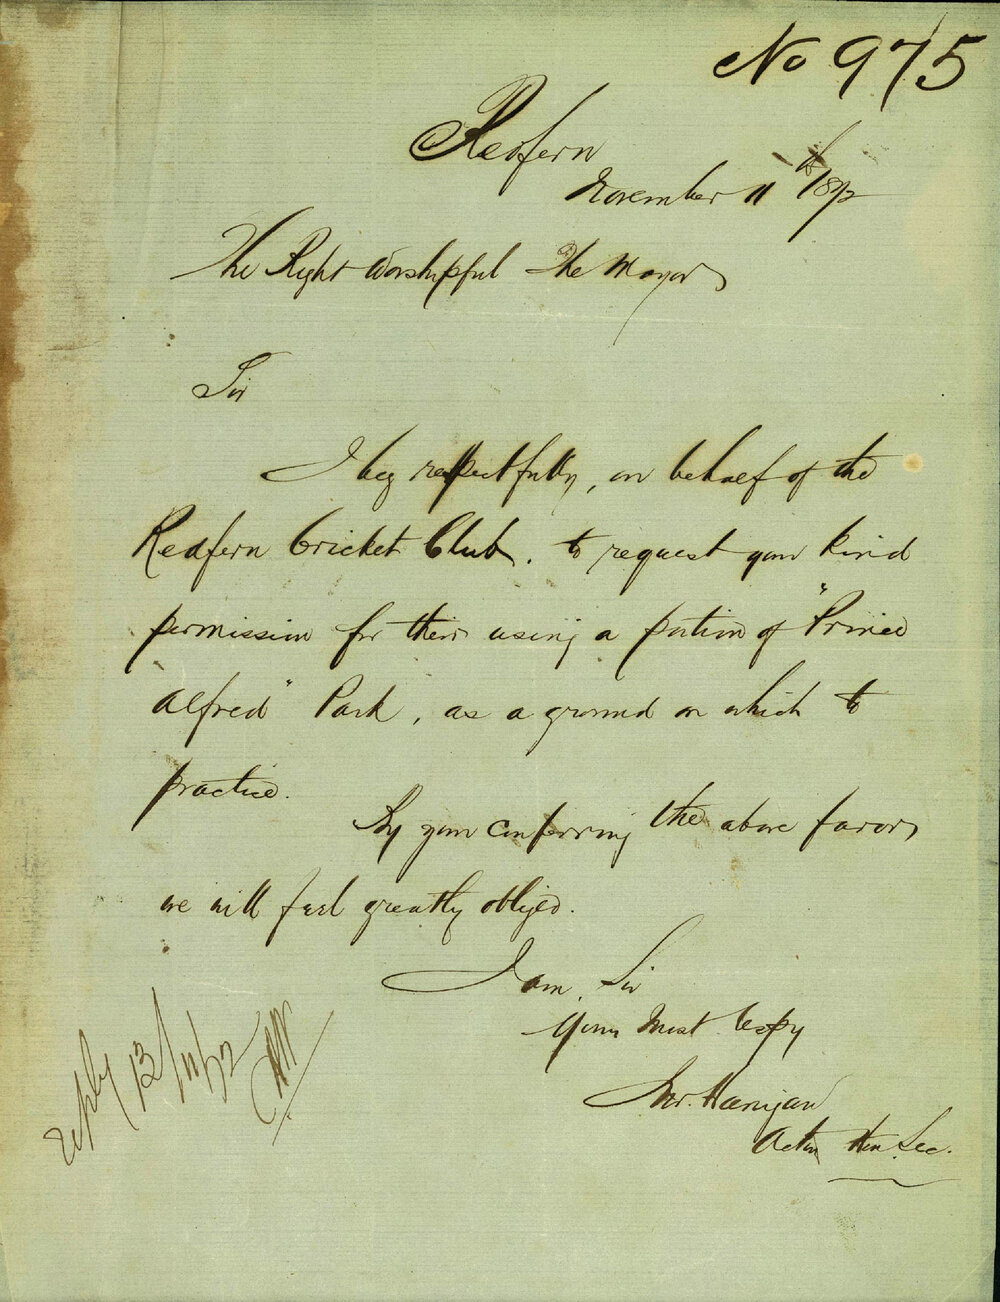 No 975
Redfern
November 11th 1872
The Right Worshipful The Mayor
Sir
I beg respectfully, on behalf of the
Redfern Cricket Club, to request your kind
permission for their using a portion of "Prince
Alfred" Park, as a ground on which to
practice.
By your conferring the above favor
we will feel greatly obliged.
I am Sir
Yours Most Respy
Hanigan
Actin Hon. Sec.
reply 13/11/72